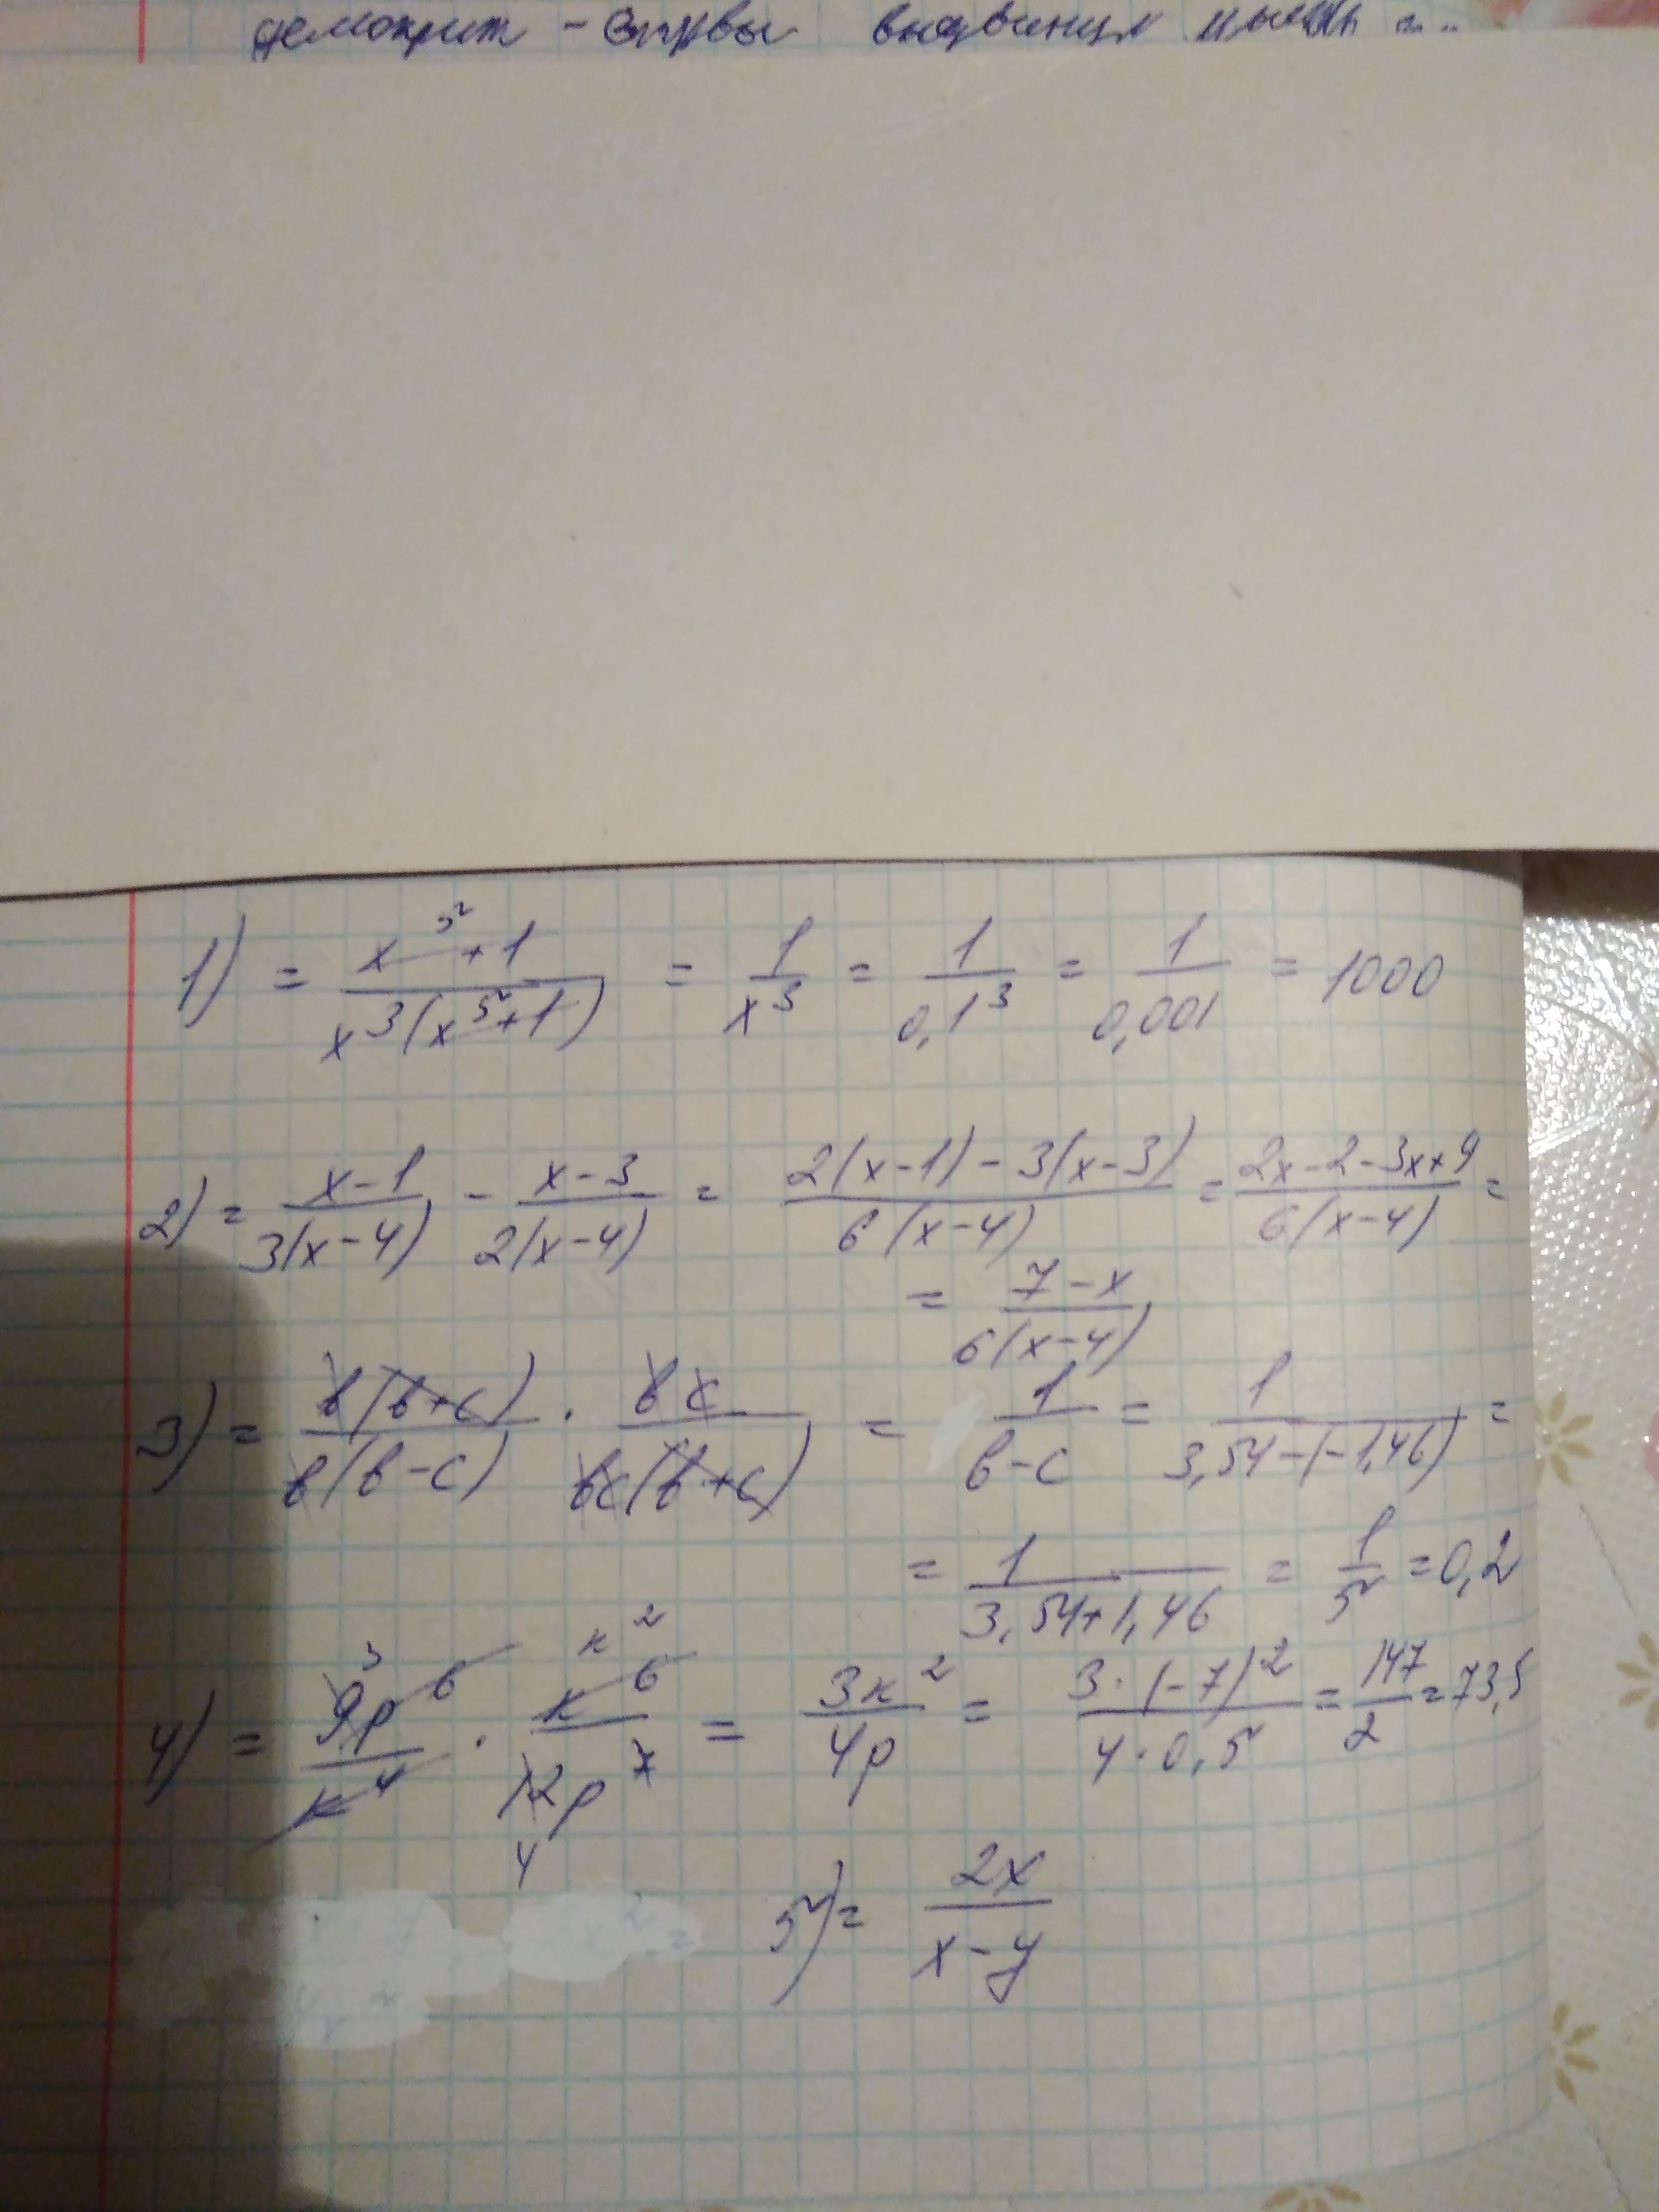 Демокрит - впервы выдвинул мысль ...
1) = \frac{x^5+1}{x^3(x^5+1)} = \frac{1}{x^3} = \frac{1}{0,1^3} = \frac{1}{0,001} = 1000
2) = \frac{x-1}{3(x-4)} - \frac{x-3}{2(x-4)} = \frac{2(x-1)-3(x-3)}{6(x-4)} = \frac{2x-2-3x+9}{6(x-4)} =
= \frac{7-x}{6(x-4)}
3) = \frac{b(b+c)}{b(b-c)} · \frac{bc}{bc(b+c)} = \frac{1}{b-c} = \frac{1}{3,54-(-1,46)} =
= \frac{1}{3,54+1,46} = \frac{1}{5} = 0,2
4) = \frac{9p^6}{k^4} · \frac{k^6}{12p^7} = \frac{3k^2}{4p} = \frac{3·(-7)^2}{4·0,5} = \frac{147}{2} = 73,5
5) = \frac{2x}{x-y}